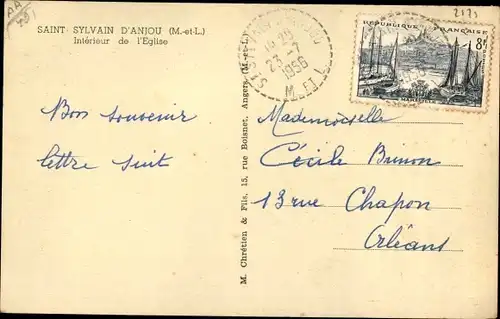 SAINT SYLVAIN D'ANJOU (M.-et-L.)
Intérieur de l'Eglise
Bon souvenir
lettre suit
M. Chrétien & Fils, 15, rue Boisnet, Angers (M.-et-L.)
23-7
1956
M. ET L.
REPUBLIQUE FRANÇAISE
8F
MARSEILLE
2171
Mademoiselle
Cécile Brinon
13 rue Chapon
Orléans